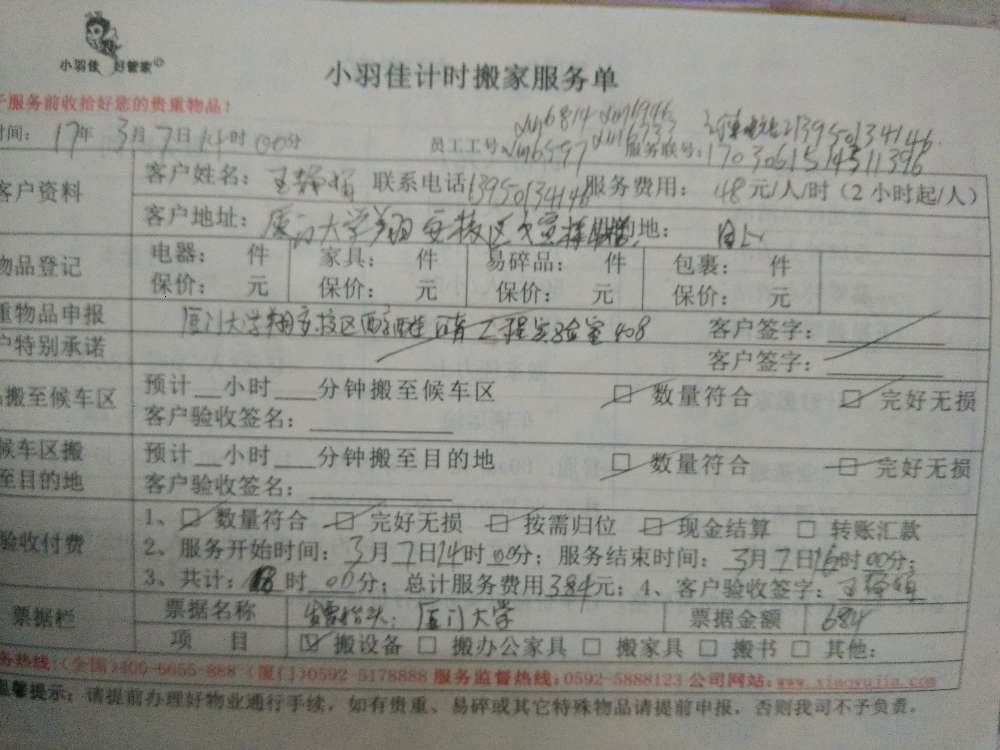 小羽佳 好管家
小羽佳计时搬家服务单
服务前收拾好您的贵重物品!
时间: 17年 3月7日14时00分 员工工号 6814 6946 6597 6733 13950134146
服务联号: 1703061514511396
客户资料 客户姓名: 王 联系电话13950134146 服务费用: 48元/人/时(2小时起/人)
客户地址: 厦门大学翔安校区 地:
物品登记 电器: 件 家具: 件 易碎品: 件 包裹: 件
保价: 元 保价: 元 保价: 元 保价: 元
重物品申报 厦门大学翔安校区 工程实验室408 客户签字:
户特别承诺 客户签字:
搬至候车区 预计__小时___分钟搬至候车区 □ 数量符合 □ 完好无损
客户验收签名:
候车区搬 预计__小时___分钟搬至目的地 □ 数量符合 □ 完好无损
至目的地 客户验收签名:
验收付费 1、□ 数量符合 □ 完好无损 □ 按需归位 □ 现金结算 □ 转账汇款
2、服务开始时间: 3月7日14时00分; 服务结束时间: 3月7日16时00分;
3、共计: 8时00分; 总计服务费用384元; 4、客户验收签字: 王
票据栏 票据名称 发票抬头: 厦门大学 票据金额 684
项 目 ☑ 搬设备 □ 搬办公家具 □ 搬家具 □ 搬书 □ 其他:
务热线:(全国)400-6655-888 (厦门)0592-5178888 服务监督热线:0592-5888123 公司网站:www.xiaoyujia.com
温馨提示: 请提前办理好物业通行手续, 如有贵重、易碎或其它特殊物品请提前申报, 否则我司不予负责。